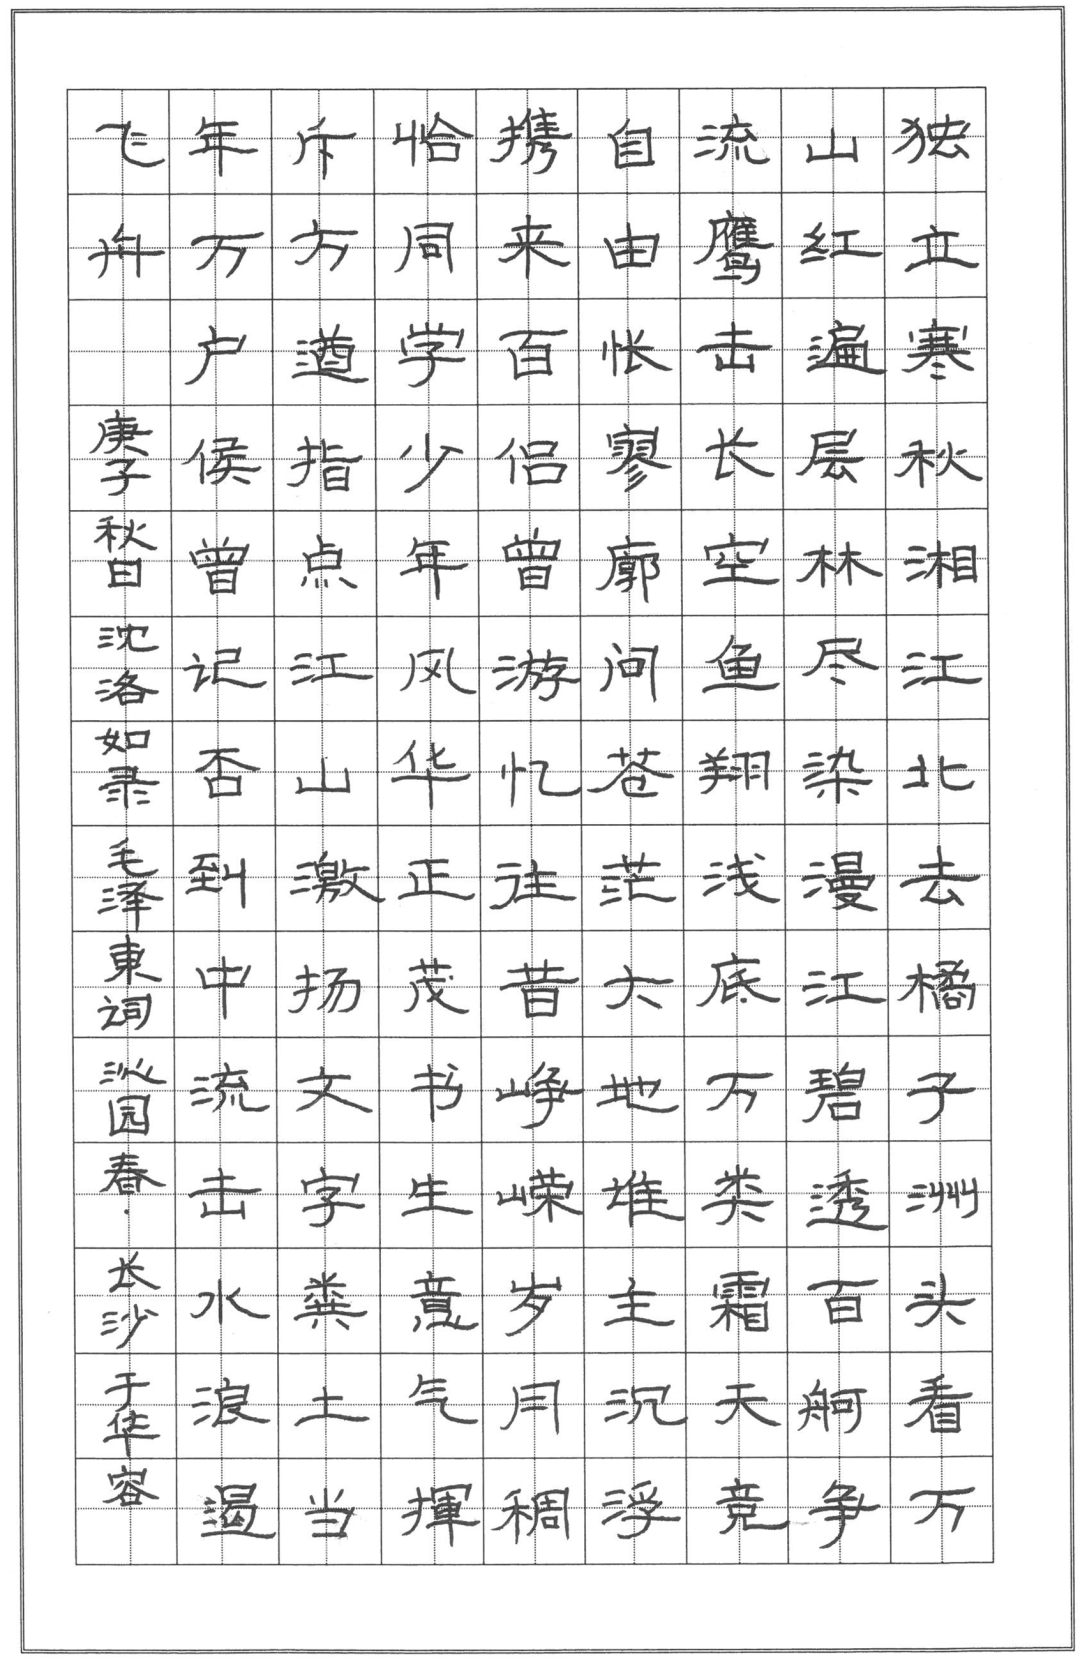 独立寒秋湘江北去橘子洲头看万
山红遍层林尽染漫江碧透百舸争
流鹰击长空鱼翔浅底万类霜天竞
自由怅寥廓问苍茫大地谁主沉浮
携来百侣曾游忆往昔峥嵘岁月稠
恰同学少年风华正茂书生意气挥
斥方遒指点江山激扬文字粪土当
年万户侯曾记否到中流击水浪遏
飞舟
庚子秋日沈洛如录毛泽東词沁园春·长沙于华容